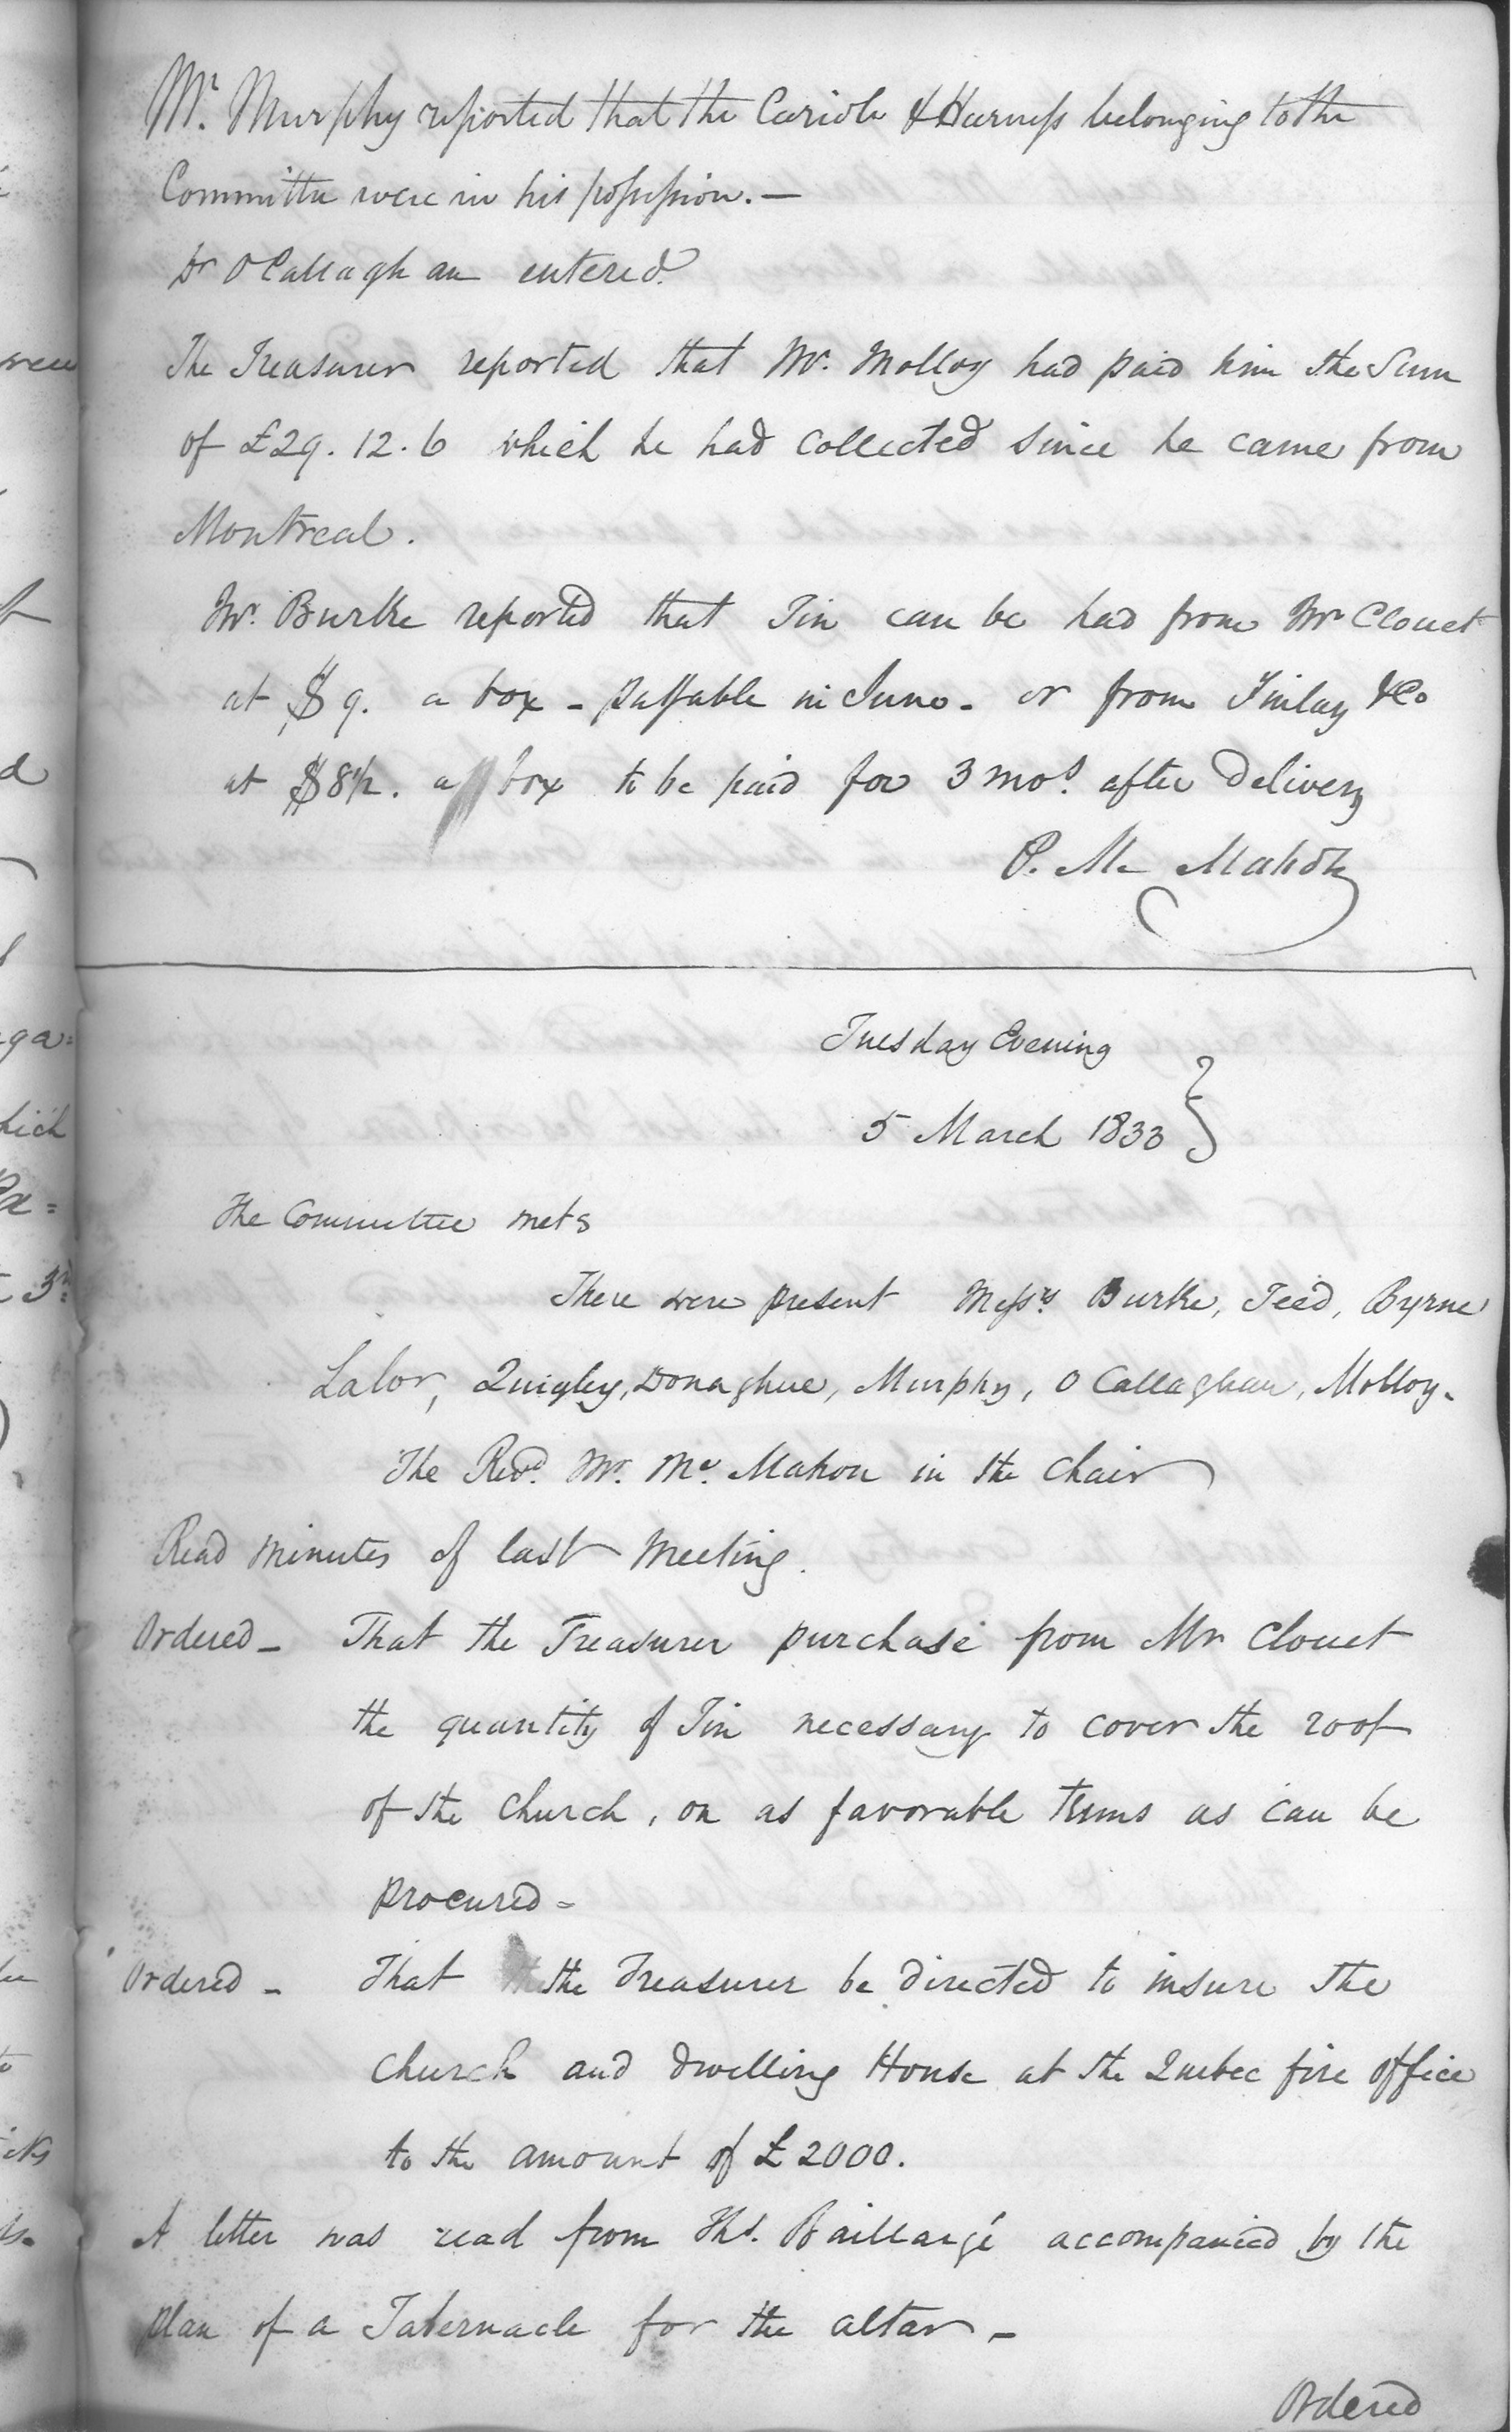 Mr. Murphy reported that the Cariole & Harness belonging to the
Committee were in his possession. —
Dr O Callaghan entered.
The Treasurer reported that Mr. Molloy had paid him the Sum
of £29. 12. 6 which he had collected since he came from
Montreal.
Mr. Burke reported that Tin can be had from Mr Clouet
at $9. a box - payable in June - or from Finlay & Co
at $8½. a box to be paid for 3 mos. after delivery
P. Mc Mahon
Tuesday Evening
5 March 1833
The Committee met
There were present Messrs. Burke, Teed, Byrne
Lalor, Quigley, Donaghue, Murphy, O Callaghan, Molloy.
The Revd. Mr. Mc. Mahon in the Chair
Read minutes of last Meeting.
Ordered - That the Treasurer purchase from Mr Clouet
the quantity of Tin necessary to cover the roof
of the Church, on as favorable terms as can be
procured -
Ordered - That the Treasurer be directed to insure the
Church and dwelling House at the Quebec fire office
to the amount of £2000.
A letter was read from Ths. Baillargé accompanied by the
plan of a Tabernacle for the altar -
Ordered